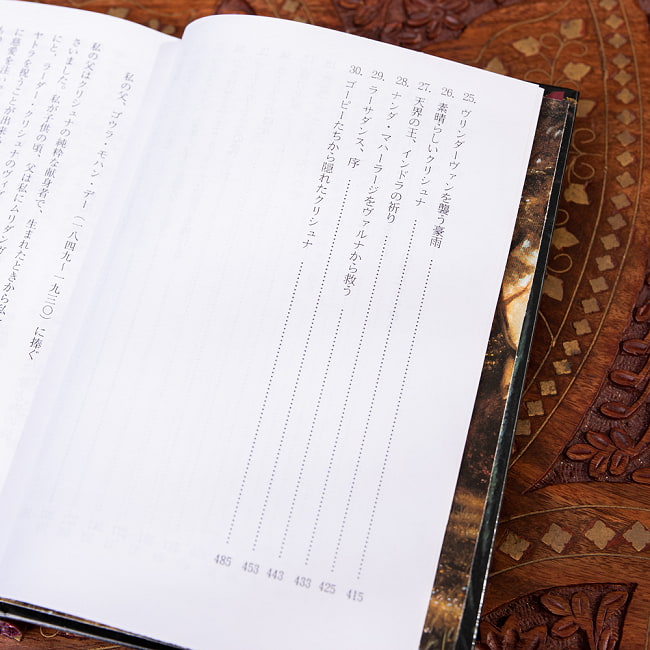 25. ヴリンダーヴァンを襲う豪雨 415
26. 素晴らしいクリシュナ 425
27. 天界の王、インドラの祈り 433
28. ナンダ・マハーラージをヴァルナから救う 443
29. ラーサダンス、序 453
30. ゴーピーたちから隠れたクリシュナ 485
私の父、ゴウラ・モハン・デー(一八四九〜一九三〇)に捧ぐ
私の父はクリシュナの純粋な献身者で、
さいました。私が子供の頃、父は私にムリダンガ
にと、ラーダー・クリシュナのヴィ
ヤトラを